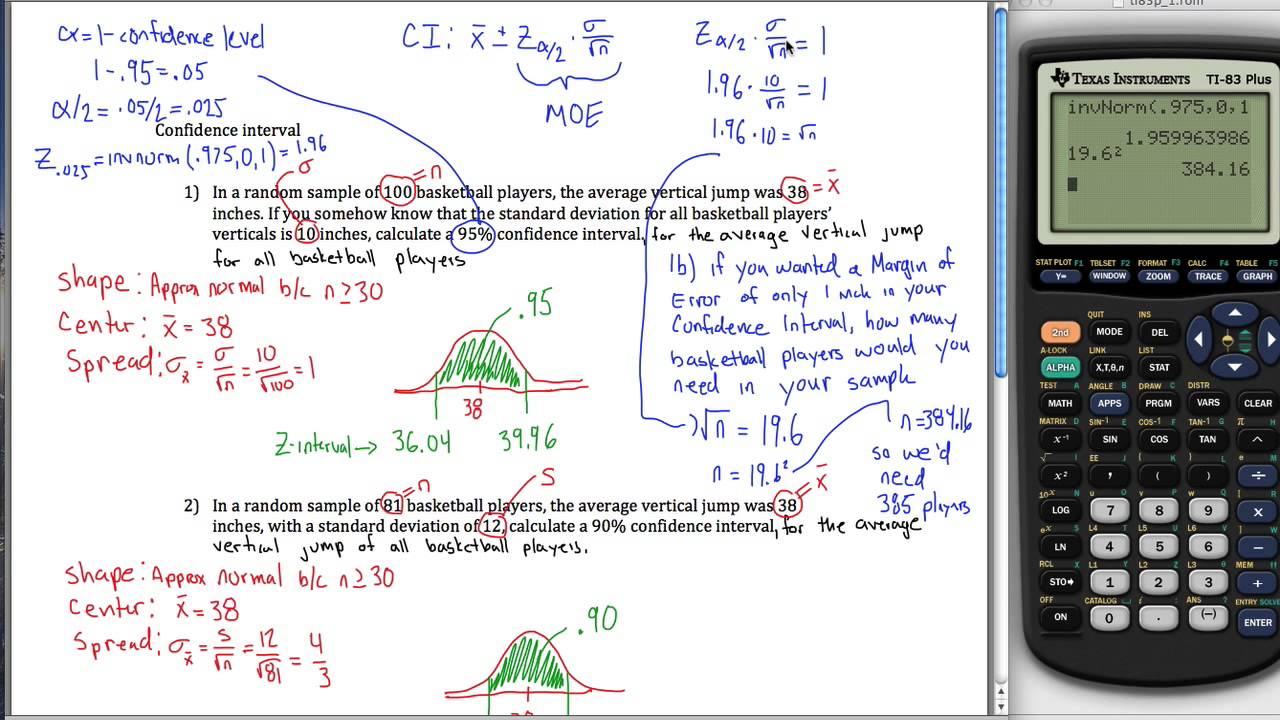 α = 1 - confidence level
1 - .95 = .05
α/2 = .05/2 = .025
Z.025 = invnorm(.975,0,1) = 1.96
CI: x̄ ± Zα/2 · σ/√n
MOE
Zα/2 · σ/√n = 1
1.96 · 10/√n = 1
1.96 · 10 = √n
Confidence interval
σ
= n
= x̄
1) In a random sample of 100 basketball players, the average vertical jump was 38
inches. If you somehow know that the standard deviation for all basketball players'
verticals is 10 inches, calculate a 95% confidence interval, for the average vertical jump
for all basketball players
Shape: Approx normal b/c n ≥ 30
Center: x̄ = 38
Spread: σx̄ = σ/√n = 10/√100 = 1
.95
38
Z-interval → 36.04 39.96
1b) if you wanted a Margin of
Error of only 1 inch in your
Confidence Interval, how many
basketball players would you
need in your sample
√n = 19.6
n = 19.6²
n = 384.16
so we'd
need
385 players
= n
S
= x̄
2) In a random sample of 81 basketball players, the average vertical jump was 38
inches, with a standard deviation of 12, calculate a 90% confidence interval, for the average
vertical jump of all basketball players.
Shape: Approx normal b/c n ≥ 30
Center: x̄ = 38
Spread: σx̄ = s/√n = 12/√81 = 4/3
.90
ti83p_1.rom
TEXAS INSTRUMENTS TI-83 Plus
invNorm(.975,0,1
1.959963986
19.6²
384.16
STAT PLOT F1 TBLSET F2 FORMAT F3 CALC F4 TABLE F5
Y= WINDOW ZOOM TRACE GRAPH
QUIT INS
2nd MODE DEL
A-LOCK LINK LIST
ALPHA X,T,θ,n STAT
TEST A ANGLE B DRAW C DISTR
MATH APPS PRGM VARS CLEAR
MATRIX D SIN⁻¹ E COS⁻¹ F TAN⁻¹ G π H
x⁻¹ SIN COS TAN ^
√ I EE J { K } L e M
x² , ( ) ÷
10ˣ N u O v P w Q [ R
LOG 7 8 9 ×
eˣ S L4 T L5 U L6 V ] W
LN 4 5 6 −
RCL X L1 Y L2 Z L3 θ MEM "
STO▸ 1 2 3 +
OFF CATALOG i : ANS ? ENTRY SOLVE
ON 0 . (−) ENTER